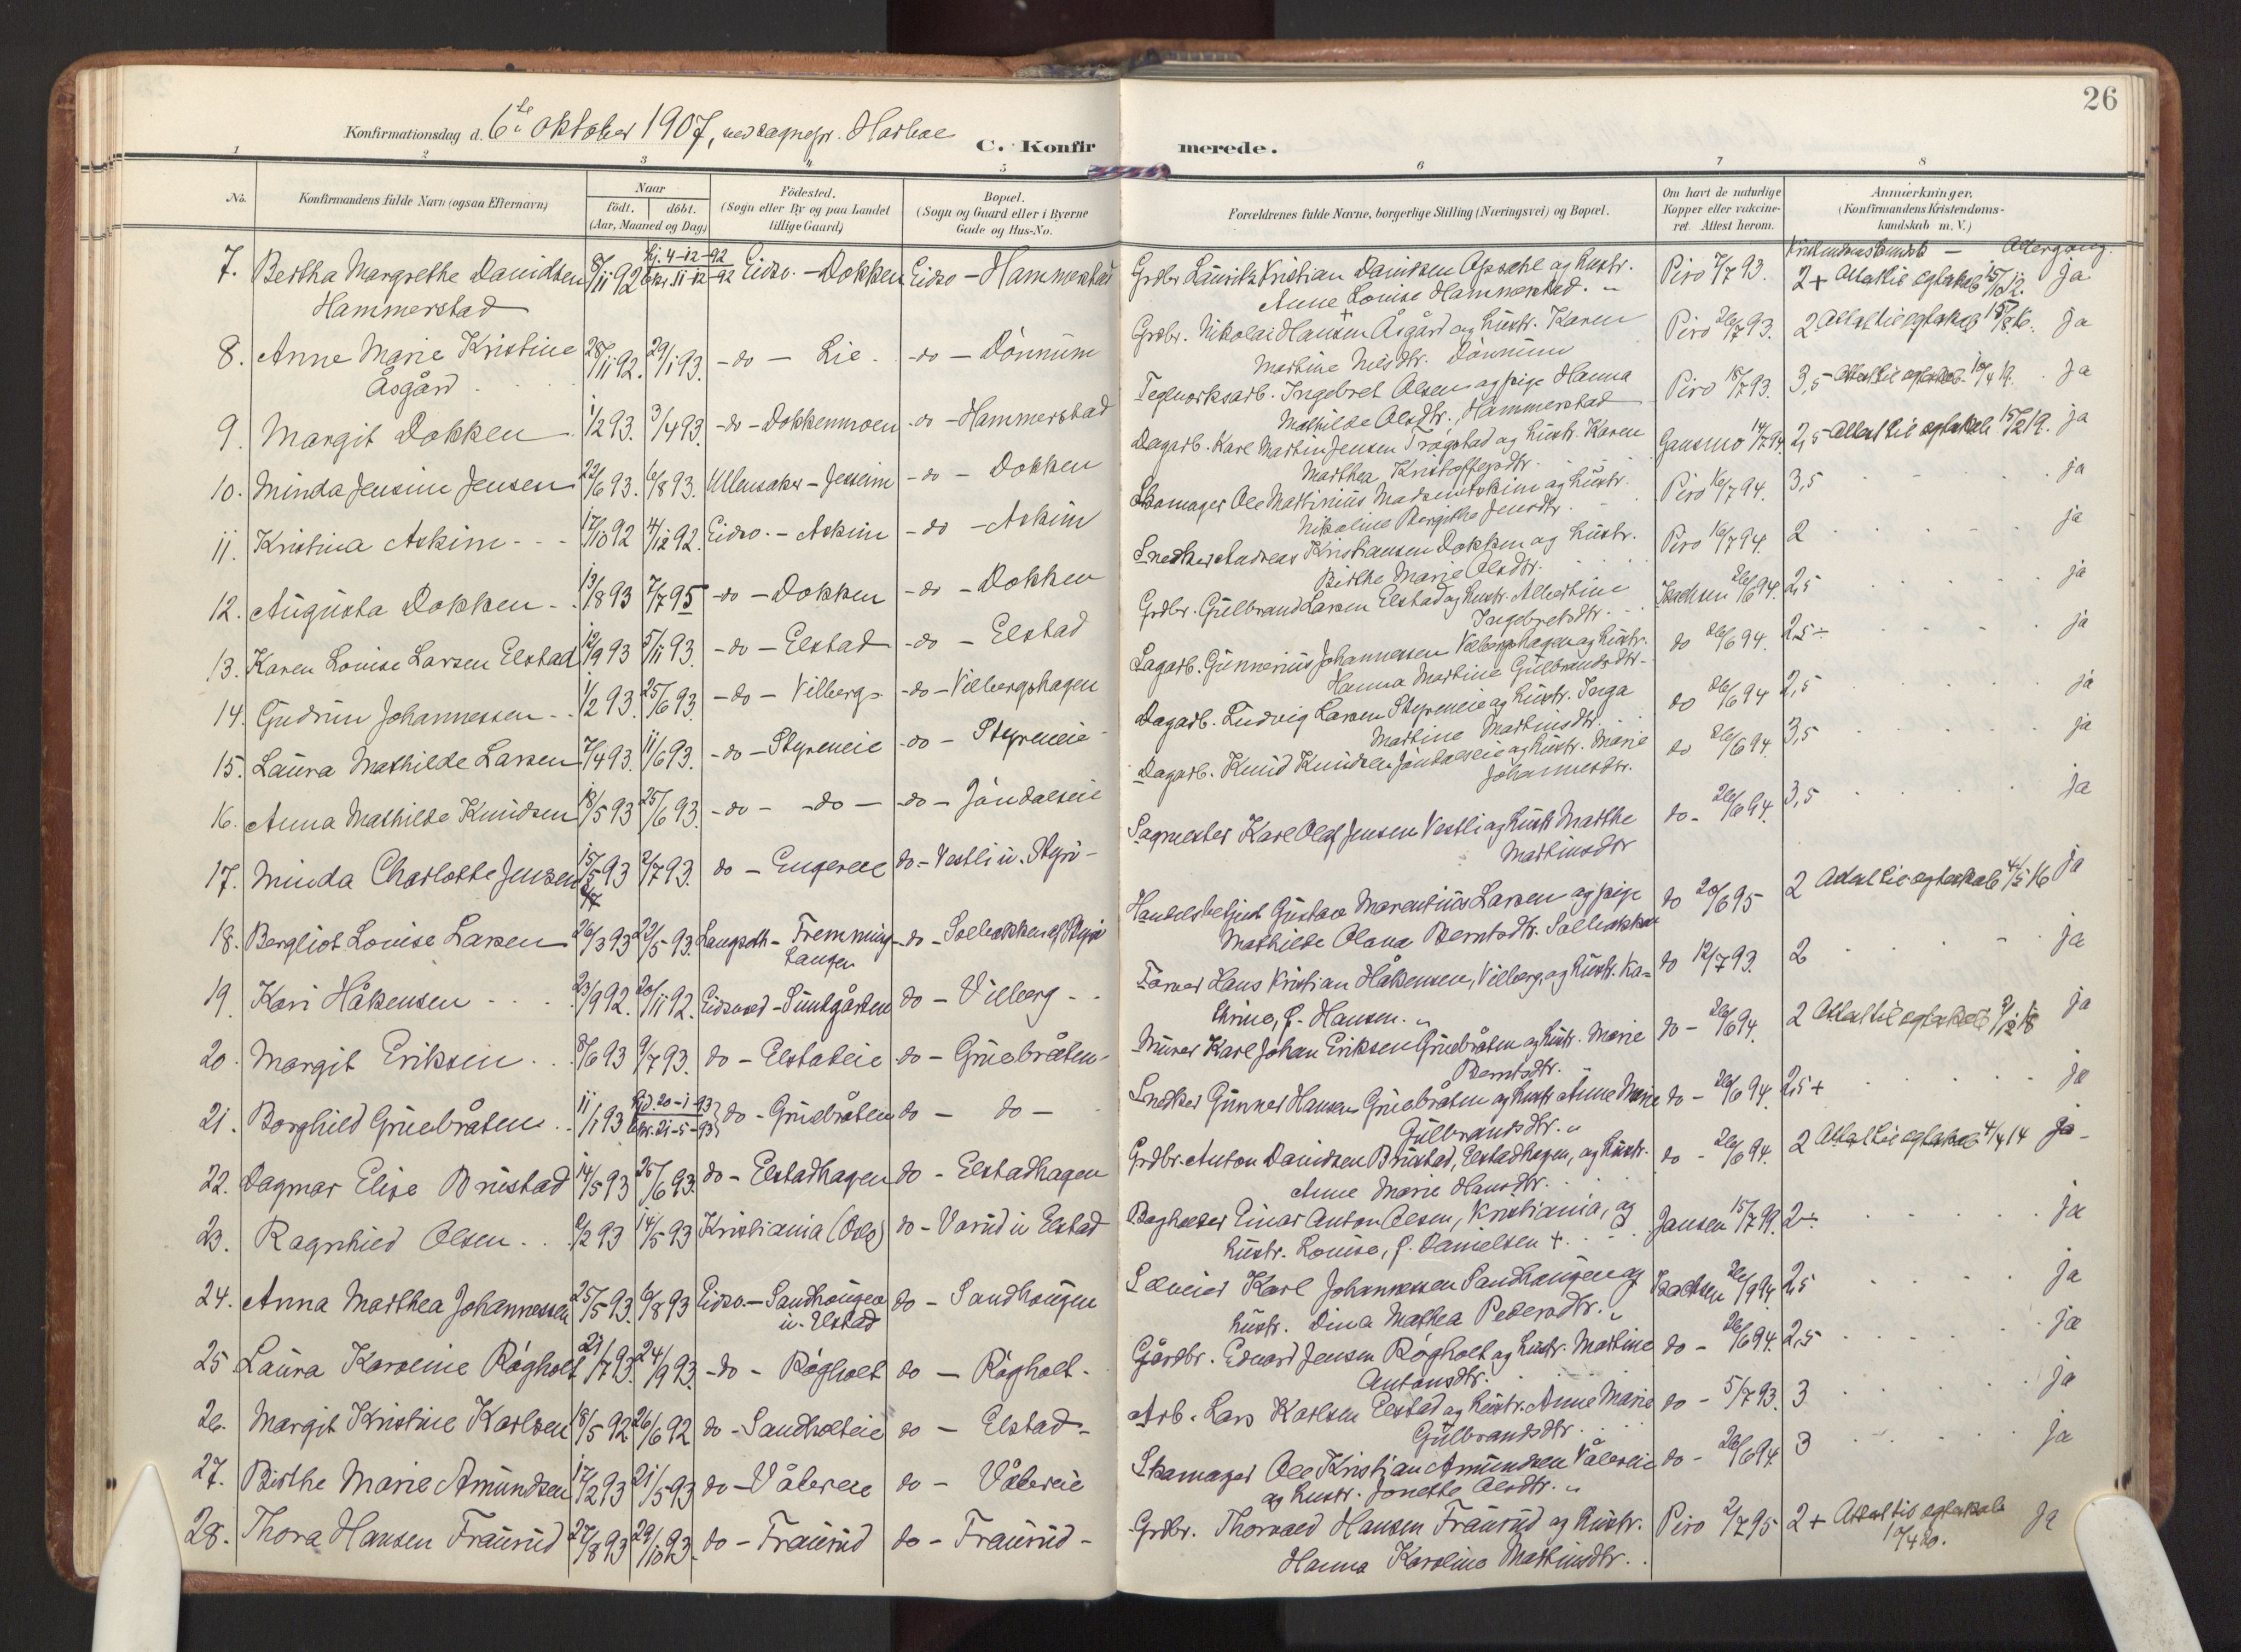 26
Konfirmationsdag d. 6te oktober 1907, ved sognepr. Harboe
C. Konfirmerede.
1 2 3 4 5 6 7 8
No. Konfirmandens fulde Navn (ogsaa Efternavn) Naar födt. döbt. (Aar, Maaned og Dag) Födested. (Sogn eller By og paa Landet tillige Gaard) Bopæl. (Sogn og Gaard eller i Byerne Gade og Hus-No. Forældrenes fulde Navne, borgerlige Stilling (Næringsvei) og Bopæl. Om havt de naturlige Kopper eller vakcineret. Attest herom. Anmærkninger. (Konfirmandens Kristendomskundskab m. V.)
Kristendomskundsk — Altergang
7. Bertha Margrethe Davidsen 8/11 92 Hj. 4-12-92 Eidsv. - Dokken Eidsv - Hammerstad Grdbr Lauritz Kristian Davidsen Opsahl og hustr. Piro 7/7 93. 2+ Attest til egteskab 15/10 12. Ja
Hammerstad Anne Louise Hammerstad.
8. Anne Marie Kristine 28/11 92. 29/1 93. -do- Lie -do- Dønnum Grdbr. Nikolai Hansen Åsgård og hustr. Karen Piro 26/7 93. 2 Attest til egteskab Ja
Åsgård Martine Nilsdtr. Dønnum
9. Margit Dokken 1/2 93. 3/4 93. -do- Dokkenmoen -do- Hammerstad Teglverksarb. Ingebret Olsen og pige Hanna Piro 18/7 93. 3,5 Attest til egteskab 10/4 19. Ja
Mathilde Olsdtr., Hammerstad
10. Minda Jensine Jensen 22/6 93. 6/8 93. Ullensaker - Jessheim -do- Dokken Dagarb. Karl Martin Jensen Trøgstad og hustr. Karen Gansmo 14/7 94. 2,5 Attest til egteskab 15/2 19. ja
Marthea Kristoffersdtr.
11. Kristina Askim 17/10 92 4/12 92. Eidsv. - Askim -do- Askim Skomager Ole Martinius Madsen Askim og hustr. Piro 16/7 94. 3,5 ja
Nikoline Bergithe Jensdtr.
12. Augusta Dokken 13/8 93 7/7 95 -do- Dokken -do- Dokken Snedker Andreas Kristiansen Dokken og hustr. Piro 16/7 94. 2 ja
Birthe Marie Olsdtr.
13. Karen Louise Larsen Elstad 12/9 93 5/11 93. -do- Elstad -do- Elstad Grdbr. Gulbrand Larsen Elstad og hustr. Albertine Isachsen 26/6 94. 2,5 ja
Ingebretsdtr.
14. Gudrun Johannessen 1/2 93. 25/6 93. -do- Vilberg -do- Vilberghagen Sagarb. Gunnerius Johannessen Vilberghagen og hustr. do 26/6 94. 2,5÷ ja
Hanna Martine Gulbrandsdtr.
15. Laura Mathilde Larsen 7/4 93. 11/6 93. -do- Styreneie -do- Styreneie Dagarb. Ludvig Larsen Styreneie og hustr. Inga do 26/6 94 2,5 ja
Martine Martinsdtr.
16. Anna Mathilde Knudsen 18/5 93 25/6 93. -do- -do- -do- Jøndalseie Dagarb. Knud Knudsen Jøndalseie og hustr. Marie do 26/6 94. 3,5 ja
Johannesdtr.
17. Minda Charlotte Jensen 15/5 93 2/7 93. do - Engereie do - Vestli u. Styri Sagmester Karl Olaf Jensen Vestli og hustr Marthe do - 26/6 94. 3,5 ja
Martinsdtr
18. Bergliot Louise Larsen 26/3 93 22/5 93. Langseth - Fremming -do- Solbakken af Styri Handelsbetjent Gustav Marentius Larsen og pige do 20/6 95 2 Attest til egteskab 4/5 16 ja
Langen Mathilde Olava Berntsdtr. Solbakken
19. Kari Håkensen 23/9 92. 20/11 92. Eidsvold - Sundgården do - Vilberg Farver Hans Kristian Håkensen, Vilberg, og hustr. Ka- do 12/7 93. 2 ja
thrine, f. Hansen.
20. Margit Eriksen 8/6 93 9/7 93. do - Elstadeie do - Gruebråten Murer Karl Johan Eriksen Gruebråten og hustr. Marie do - 26/6 94. 2 Attest til egteskab ja
Berntsdtr.
21. Borghild Gruebråten 11/1 93 Hjd. 20-1-93 do - Gruebråten do - do - Snedker Gunner Hansen Gruebråten og hustr Anne Marie do - 26/6 94. 2,5+ ja
21-5-93 Gulbrandsdtr.
22. Dagmar Elise Brustad 14/5 93 25/6 93. do - Elstadhagen do - Elstadhagen Grdbr. Anton Davidsen Brustad, Elstadhagen, og hustr. do - 26/6 94. 2 Attest til egteskab 4/4 14 ja
Anne Marie Hansdtr.
23. Ragnhild Olsen 9/2 93 14/5 93 Kristiania (Oslo) do - Vorud u Elstad Bogholder Einar Anton Olsen, Kristiania, og Jansen 15/7 99. 2÷ ja
hustr. Louise, f. Danielsen +.
24. Anna Marthea Johannessen 25/5 93. 6/8 93 Eidsv. - Sandhaugen do - Sandhaugen Selveier Karl Johannessen Sandhaugen og Isachsen 2,5 ja
u. Elstad hustr. Dina Mathea Pedersdtr.
25 Laura Karoline Røgholt 23/7 93. 24/9 93. -do- Røgholt do - Røgholt Gårdbr. Edvard Jensen Røgholt og hustr. Martine do - 26/6 94. 2,5 ja
Antonsdtr.
26. Margit Kristine Karlsen 18/5 92 26/6 92 do - Sandholteie do - Elstad Arb. Lars Karlsen Elstad og hustr. Anne Marie do - 5/7 93. 3 ja
Gulbrandsdtr.
27. Birthe Marie Amundsen 17/2 93 21/5 93 do - Vålereie do - Vålereie Skomager Ole Kristian Amundsen Vålereie do - 26/6 94. 3 ja
og hustr. Jonette Olsdtr.
28. Thora Hansen Fraurud 27/8 93 29/10 93. do - Fraurud do - Fraurud Grdbr. Thorvald Hansen Fraurud og hustr. Piro 2/7 95 2+ Attest til egteskab Ja
Hanna Karoline Mathisdtr. 10/4 20.